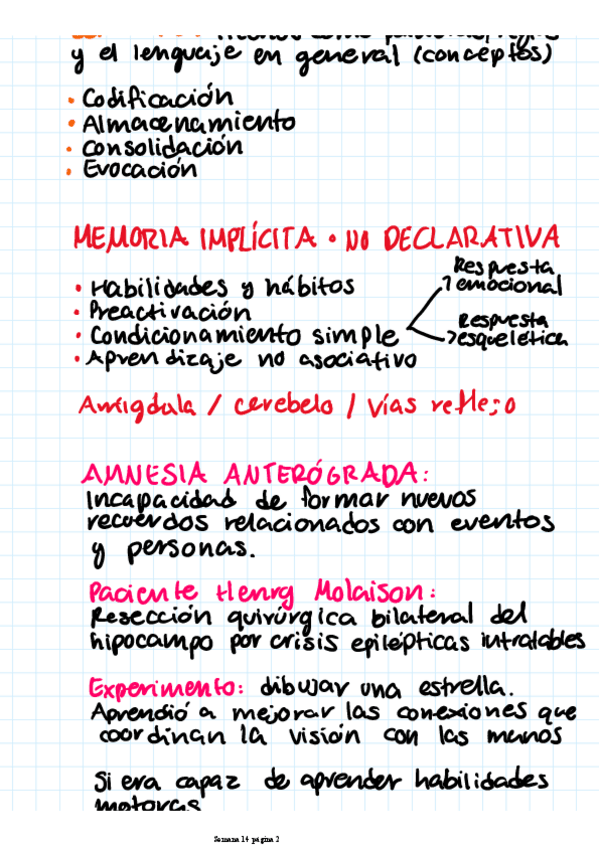 y el lenguaje en general (conceptos)
• Codificación
• Almacenamiento
• Consolidación
• Evocación
MEMORIA IMPLÍCITA • NO DECLARATIVA
• Habilidades y hábitos
• Preactivación
• Condicionamiento simple
Respuesta
emocional
Respuesta
esquelética
• Aprendizaje no asociativo
Amígdala / cerebelo / Vías reflejo
AMNESIA ANTERÓGRADA:
Incapacidad de formar nuevos
recuerdos relacionados con eventos
y personas.
Paciente Henry Molaison:
Resección quirúrgica bilateral del
hipocampo por crisis epilépticas intratables
Experimento: dibujar una estrella.
Aprendió a mejorar las conexiones que
coordinan la visión con las manos
Si era capaz de aprender habilidades
motoras
Semana 14 pagina 2